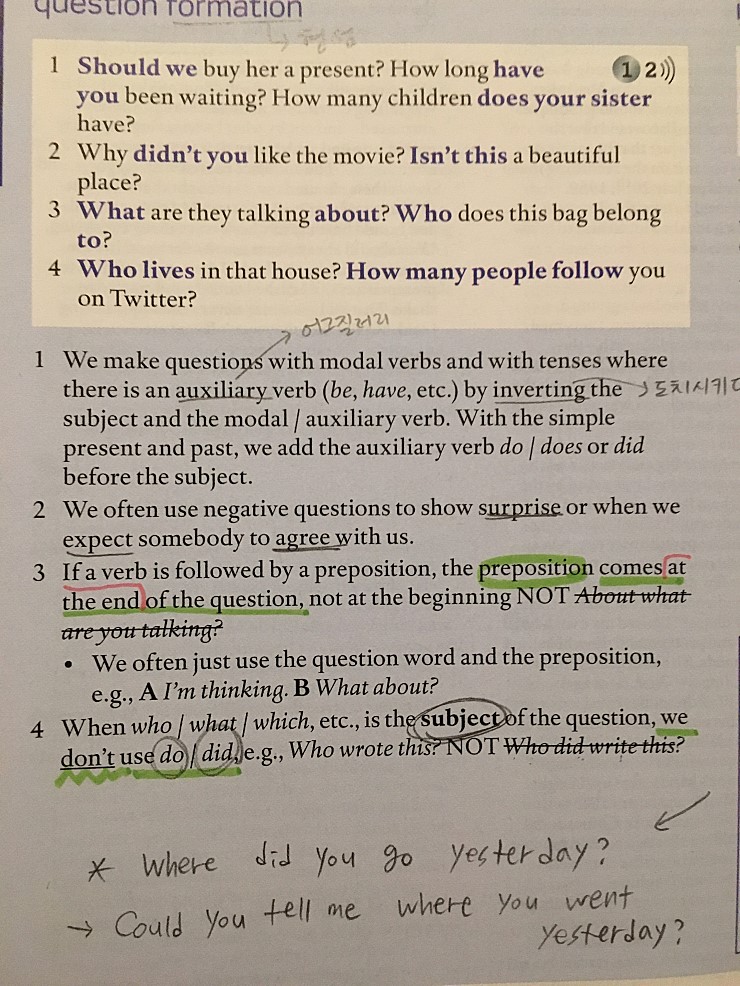 question formation
형성
1 Should we buy her a present? How long have 1 2
you been waiting? How many children does your sister
have?
2 Why didn't you like the movie? Isn't this a beautiful
place?
3 What are they talking about? Who does this bag belong
to?
4 Who lives in that house? How many people follow you
on Twitter?
어그질러리
1 We make questions with modal verbs and with tenses where
there is an auxiliary verb (be, have, etc.) by inverting the → 도치시키다
subject and the modal / auxiliary verb. With the simple
present and past, we add the auxiliary verb do / does or did
before the subject.
2 We often use negative questions to show surprise or when we
expect somebody to agree with us.
3 If a verb is followed by a preposition, the preposition comes at
the end of the question, not at the beginning NOT About what
are you talking?
• We often just use the question word and the preposition,
e.g., A I'm thinking. B What about?
4 When who / what / which, etc., is the subject of the question, we
don't use do / did, e.g., Who wrote this? NOT Who did write this?
* Where did you go yesterday?
→ Could you tell me where you went
yesterday?